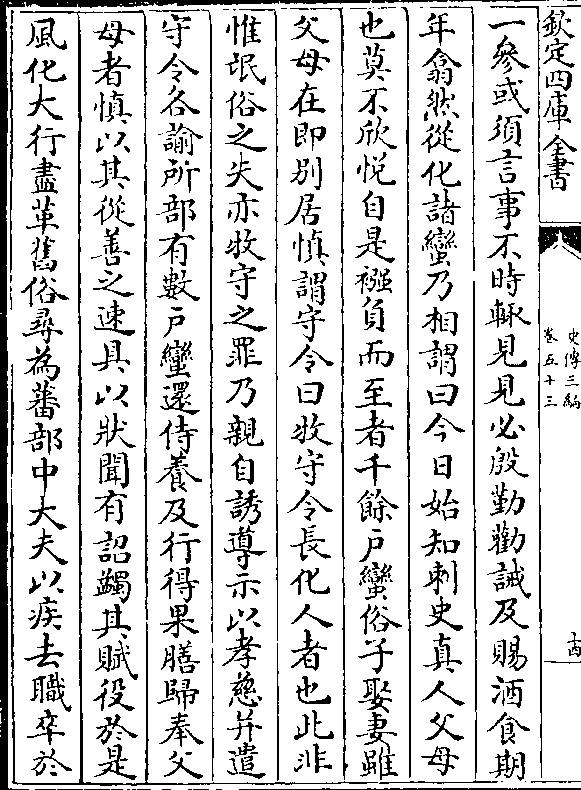 欽定四庫全書
史傳三編
卷五十三
十四
一參或須言事不時輙見見必殷勤勸誡及賜酒食期
年翕然從化諸蠻乃相謂曰今日始知刺史真人父母
也莫不欣悅自是襁負而至者千餘戶蠻俗子娶妻雖
父母在即別居慎謂守令曰牧守令長化人者也此非
惟氓俗之失亦牧守之罪乃親自誘導示以孝慈并遣
守令各諭所部有數戶蠻還侍養及行得果膳歸奉父
母者慎以其從善之速具以狀聞有詔蠲其賦役於是
風化大行盡革舊俗尋為蕃部中大夫以疾去職卒於